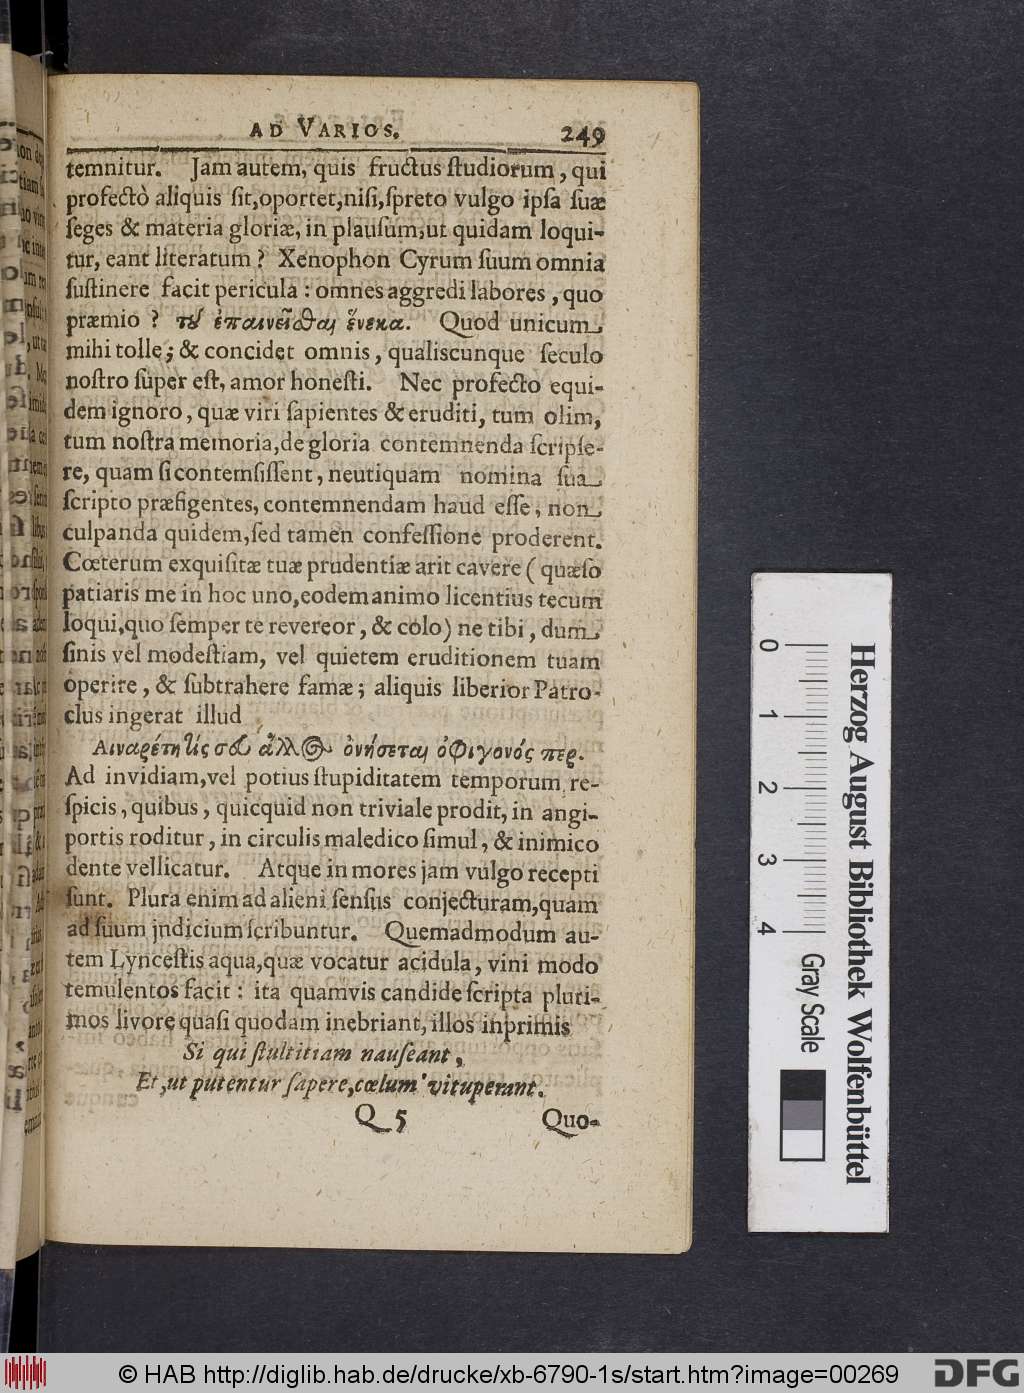 AD VARIOS. 249
temnitur. Jam autem, quis fructus ſtudiorum, qui
profectò aliquis ſit, oportet, niſi, ſpreto vulgo ipſa ſuæ
ſeges & materia gloriæ, in plauſum, ut quidam loqui-
tur, eant literatum? Xenophon Cyrum ſuum omnia
ſuſtinere facit pericula: omnes aggredi labores, quo
præmio? τȣ͂ ἐπαινεῖσθαι ἕνεκα. Quod unicum
mihi tolle; & concidet omnis, qualiscunque ſeculo
noſtro ſuper eſt, amor honeſti. Nec profecto equi-
dem ignoro, quæ viri ſapientes & eruditi, tum olim,
tum noſtra memoria, de gloria contemnenda ſcripſe-
re, quam ſi contemſiſſent, neutiquam nomina ſua
ſcripto præfigentes, contemnendam haud eſſe, non
culpanda quidem, ſed tamen confeſſione proderent.
Cœterum exquiſitæ tuæ prudentiæ arit cavere (quæſo
patiaris me in hoc uno, eodem animo licentius tecum
loqui, quo ſemper te revereor, & colo) ne tibi, dum
ſinis vel modeſtiam, vel quietem eruditionem tuam
operire, & ſubtrahere famæ; aliquis liberior Patro-
clus ingerat illud
Αιναρέτη τίς σεῦ ἄλλος ὀνήσεται ὀψιγονός περ.
Ad invidiam, vel potius ſtupiditatem temporum re-
ſpicis, quibus, quicquid non triviale prodit, in angi-
portis roditur, in circulis maledico ſimul, & inimico
dente vellicatur. Atque in mores jam vulgo recepti
ſunt. Plura enim ad alieni ſenſus conjecturam, quam
ad ſuum jndicium ſcribuntur. Quemadmodum au-
tem Lynceſtis aqua, quæ vocatur acidula, vini modo
temulentos facit: ita quamvis candide ſcripta pluri-
mos livore quaſi quodam inebriant, illos inprimis
Si qui ſtultitiam nauſeant,
Et, ut putentur ſapere, cœlum vituperant.
Q 5 Quo-
0 1 2 3 4
Gray Scale
Herzog August Bibliothek Wolfenbüttel
© HAB http://diglib.hab.de/drucke/xb-6790-1s/start.htm?image=00269
DFG